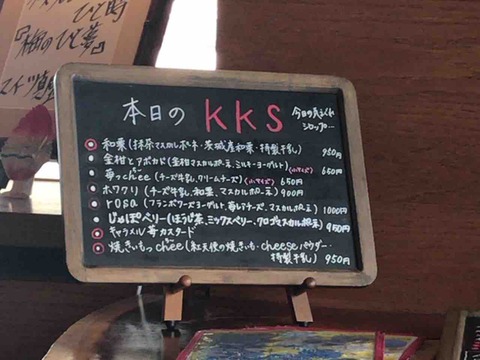 ひと時
『極のひと夢』
スイーツ
本日の KKS 今日の気まぐれ
シロップ…
和栗(抹茶マスカルポーネ・茨城産和栗・特製牛乳) 950円
金柑とアボカド(金柑マスカルポーネ、ミルキーヨーグルト)(小サイズ) 650円
苺っchee(チーズ牛乳、クリームチーズ)(小サイズ) 650円
ホワクリ(チーズ牛乳、和栗、マスカルポーネ) 900円
rosa(フランボワーズヨーグルト、苺レアチーズ、マスカルポーネ) 1000円
じゅぽベリー(ほうじ茶、ミックスベリー、クロゴマスカルポーネ) 950円
キャラメル苺カスタード
焼きいもっchee(紅天使の焼きいも・cheeseパウダー・
特製牛乳) 950円